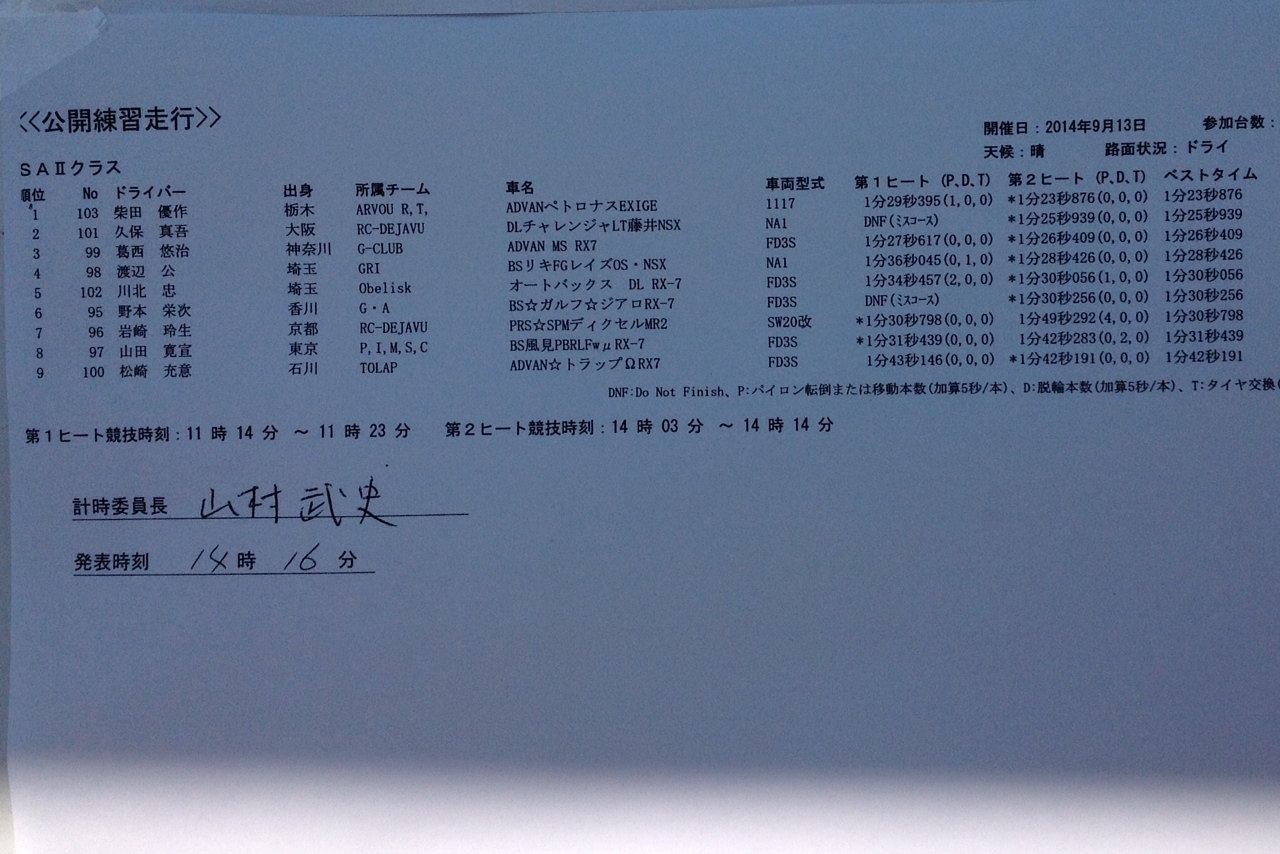 <<公開練習走行>>
開催日：2014年9月13日 参加台数：
天候：晴 路面状況：ドライ
ＳＡⅡクラス
順位 No ドライバー 出身 所属チーム 車名 車両型式 第１ヒート (P、D、T) 第２ヒート (P、D、T) ベストタイム
1 103 柴田 優作 栃木 ARVOU R,T, ADVANペトロナスEXIGE 1117 1分29秒395(1,0,0) *1分23秒876(0,0,0) 1分23秒876
2 101 久保 真吾 大阪 RC-DEJAVU DLチャレンジャLT藤井NSX NA1 DNF(ﾐｽｺｰｽ) *1分25秒939(0,0,0) 1分25秒939
3 99 葛西 悠治 神奈川 G-CLUB ADVAN MS RX7 FD3S 1分27秒617(0,0,0) *1分26秒409(0,0,0) 1分26秒409
4 98 渡辺 公 埼玉 GRI BSリキFGレイズOS・NSX NA1 1分36秒045(0,1,0) *1分28秒426(0,0,0) 1分28秒426
5 102 川北 忠 埼玉 Obelisk オートバックス DL RX-7 FD3S 1分34秒457(2,0,0) *1分30秒056(1,0,0) 1分30秒056
6 95 野本 栄次 香川 G・A BS☆ガルフ☆ジアロRX-7 FD3S DNF(ﾐｽｺｰｽ) *1分30秒256(0,0,0) 1分30秒256
7 96 岩崎 玲生 京都 RC-DEJAVU PRS☆SPMディクセルMR2 SW20改 *1分30秒798(0,0,0) 1分49秒292(4,0,0) 1分30秒798
8 97 山田 寛宣 東京 P,I,M,S,C BS風見PBRLFwμRX-7 FD3S *1分31秒439(0,0,0) 1分42秒283(0,2,0) 1分31秒439
9 100 松崎 充意 石川 TOLAP ADVAN☆トラップΩRX7 FD3S 1分43秒146(0,0,0) *1分42秒191(0,0,0) 1分42秒191
DNF:Do Not Finish、P:パイロン転倒または移動本数(加算5秒/本)、D:脱輪本数(加算5秒/本)、T:タイヤ交換(
第１ヒート競技時刻：11 時 14 分 ～ 11 時 23 分 第２ヒート競技時刻：14 時 03 分 ～ 14 時 14 分
計時委員長 山村 武史
発表時刻 14 時 16 分